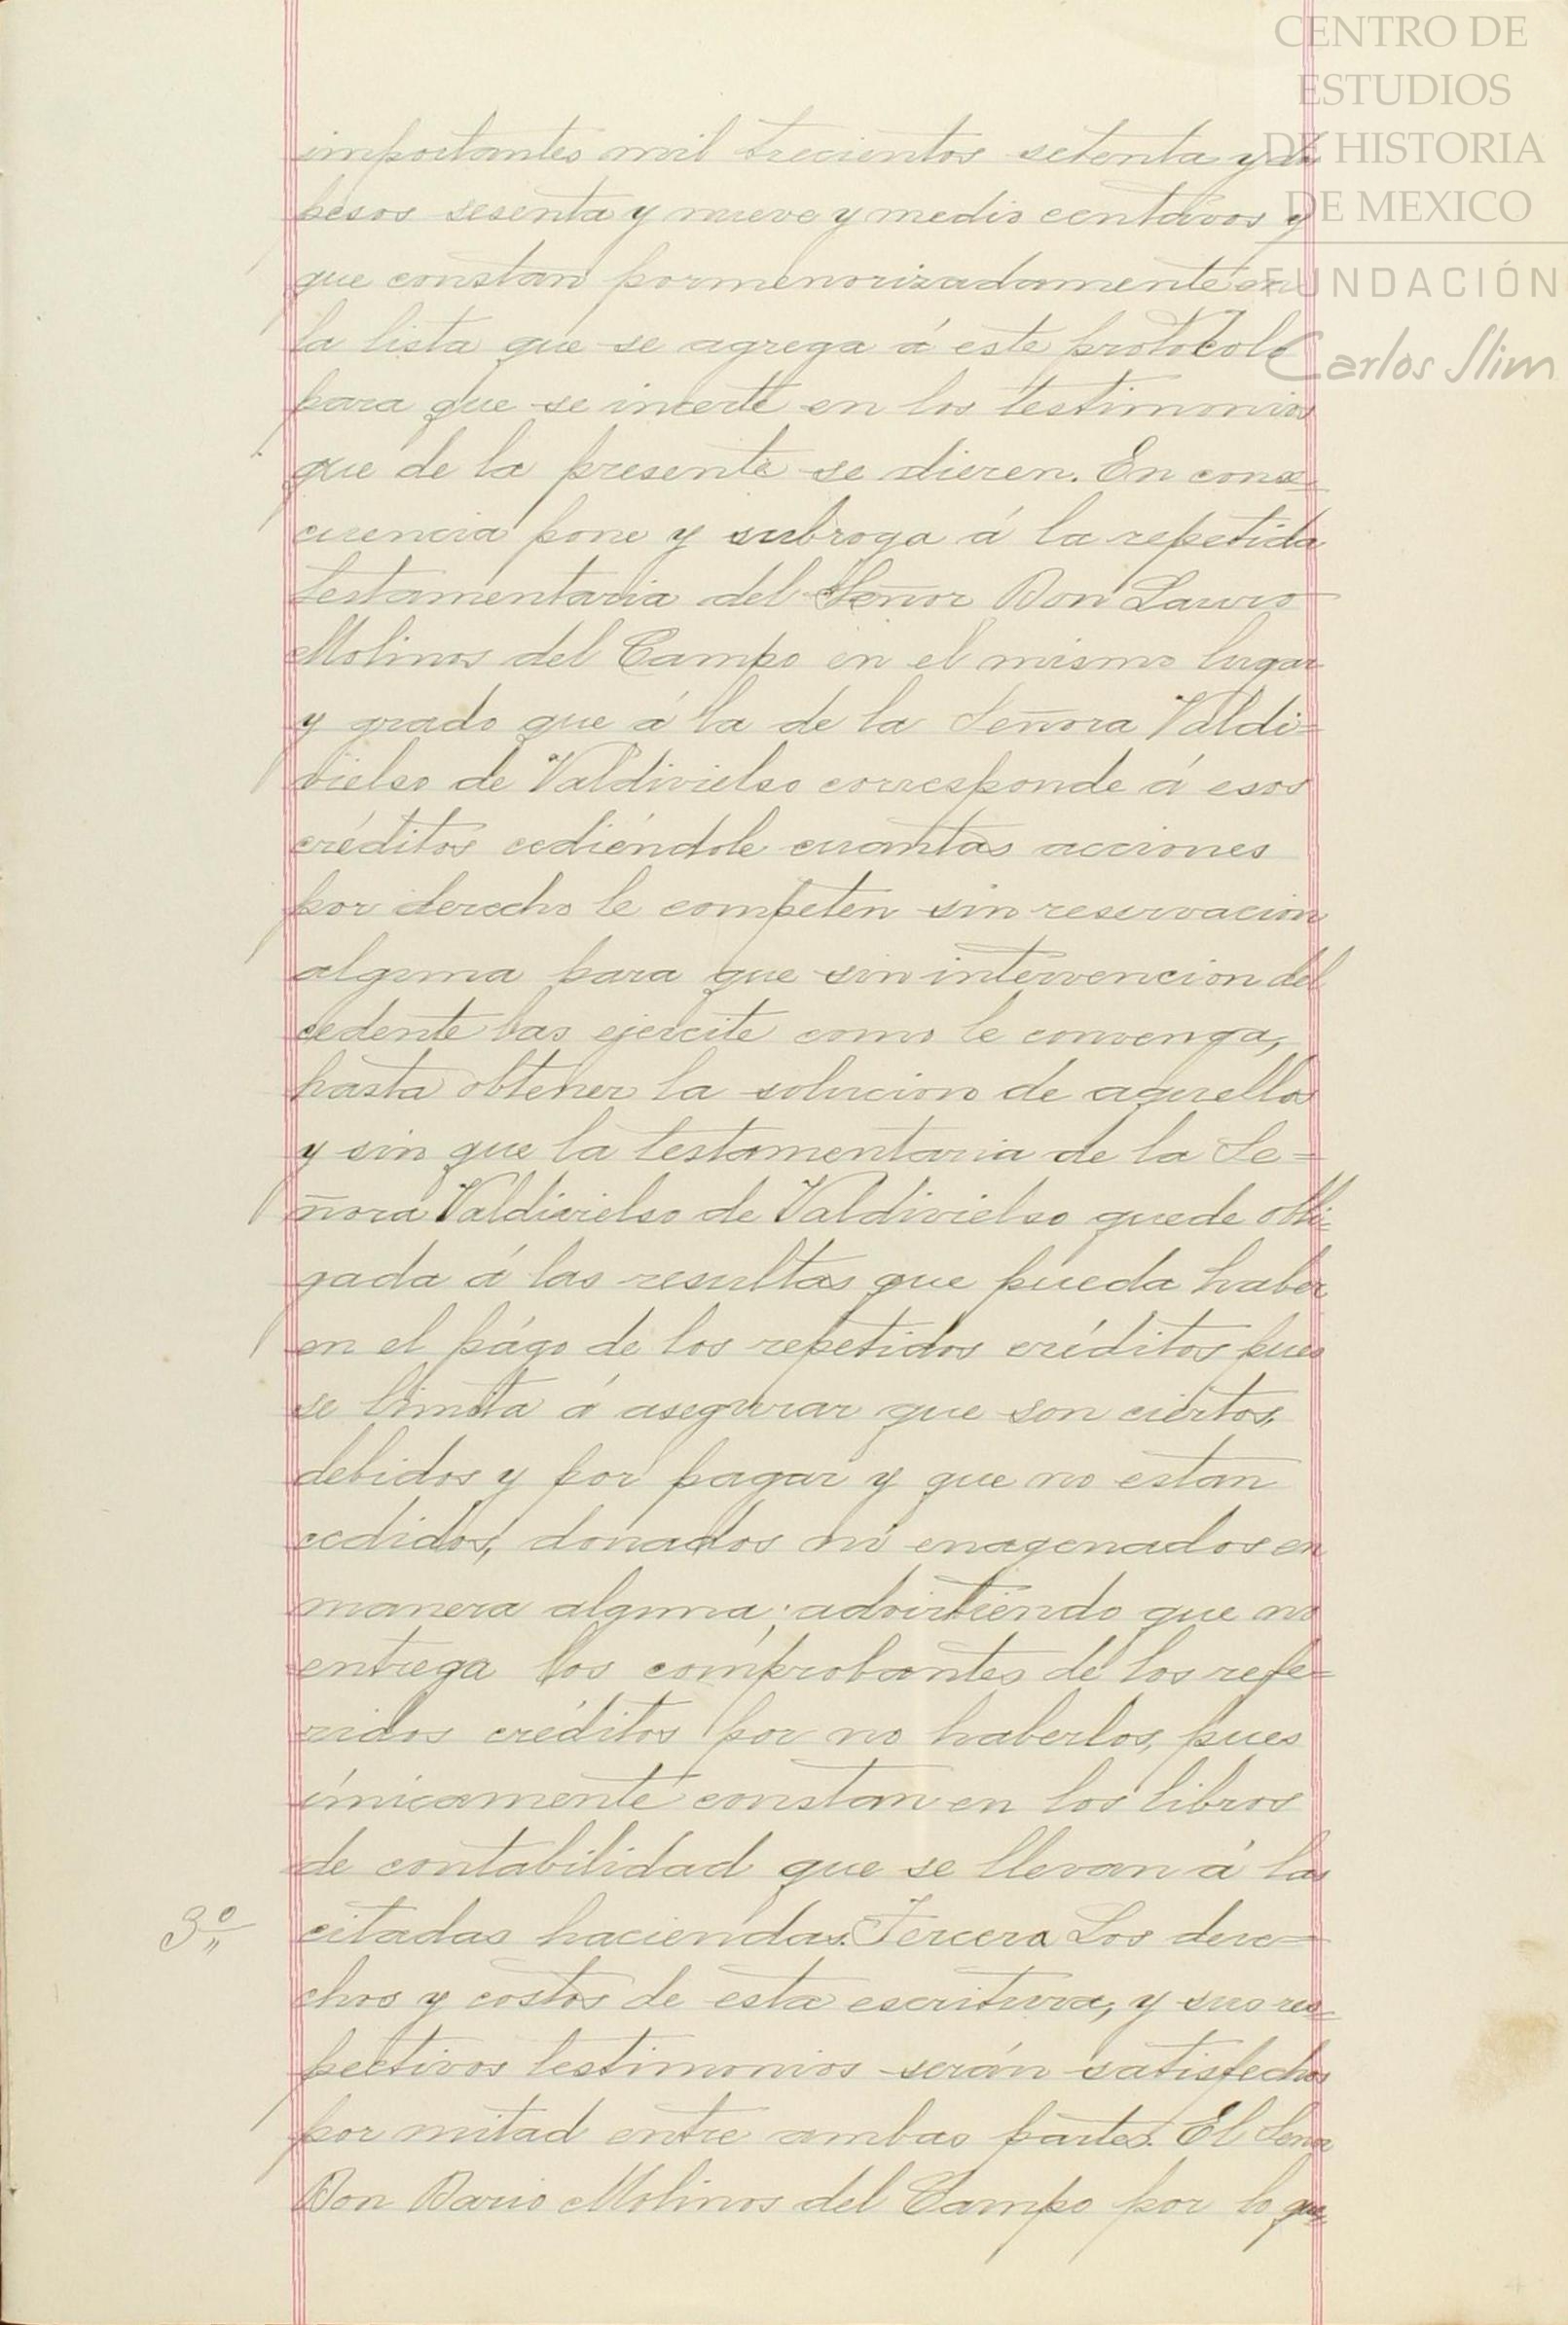 CENTRO DE
ESTUDIOS
DE HISTORIA
DE MEXICO
FUNDACIÓN
Carlos Slim
importantes mil trecientos setenta y
pesos sesenta y nueve y medio centavos y
que constan pormenorizadamente en
la lista que se agrega á este protocolo
para que se incerte en los testimonios
que de la presente se dieren. En conse=
cuencia pone y subroga á la repetida
testamentaria del Señor Don Lauro
Molinos del Campo en el mismo lugar
y grado que á la de la Señora Valdi=
vielso de Valdivielso corresponde á esos
créditos cediéndole cuantas acciones
por derecho le competen sin reservacion
alguna para que sin intervencion del
cedente las ejercite como le convenga,
hasta obtener la solucion de aquellos
y sin que la testamentaria de la Se=
ñora Valdivielso de Valdivielso quede obli=
gada á las resultas que pueda haber
en el págo de los repetidos créditos pues
se limita á asegurar que son ciertos,
debidos y por pagar y que no estan
cedidos, donados ni enagenados en
manera alguna; advirtiendo que no
entrega los comprobantes de los refe=
ridos créditos por no haberlos, pues
únicamente constan en los libros
de contabilidad que se llevan á las
3º citadas haciendas. Tercera Los dere=
chos y costos de esta escritura, y sus res=
pectivos testimonios serán satisfechos
por mitad entre ambas partes. El Señor
Don Dario Molinos del Campo por lo que